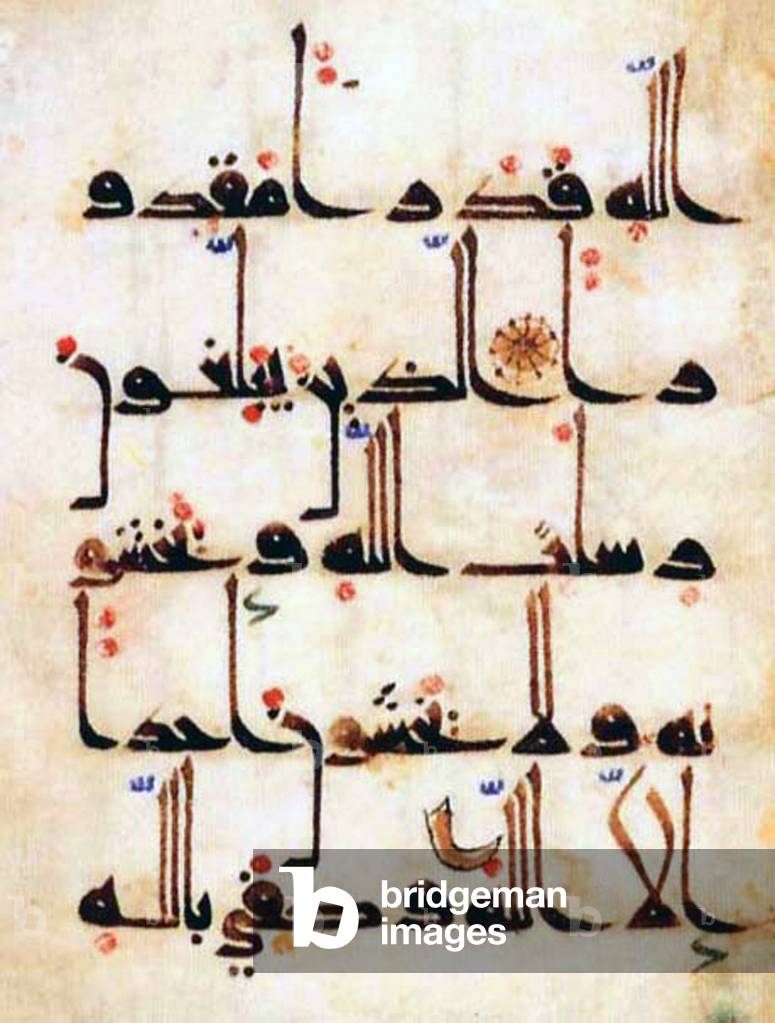 الله قدرا مقدو
را الذين يبلغون
رسلت الله ويخشو
نه ولا يخشون احدا
إلا الله وكفى بالله
b bridgeman
images